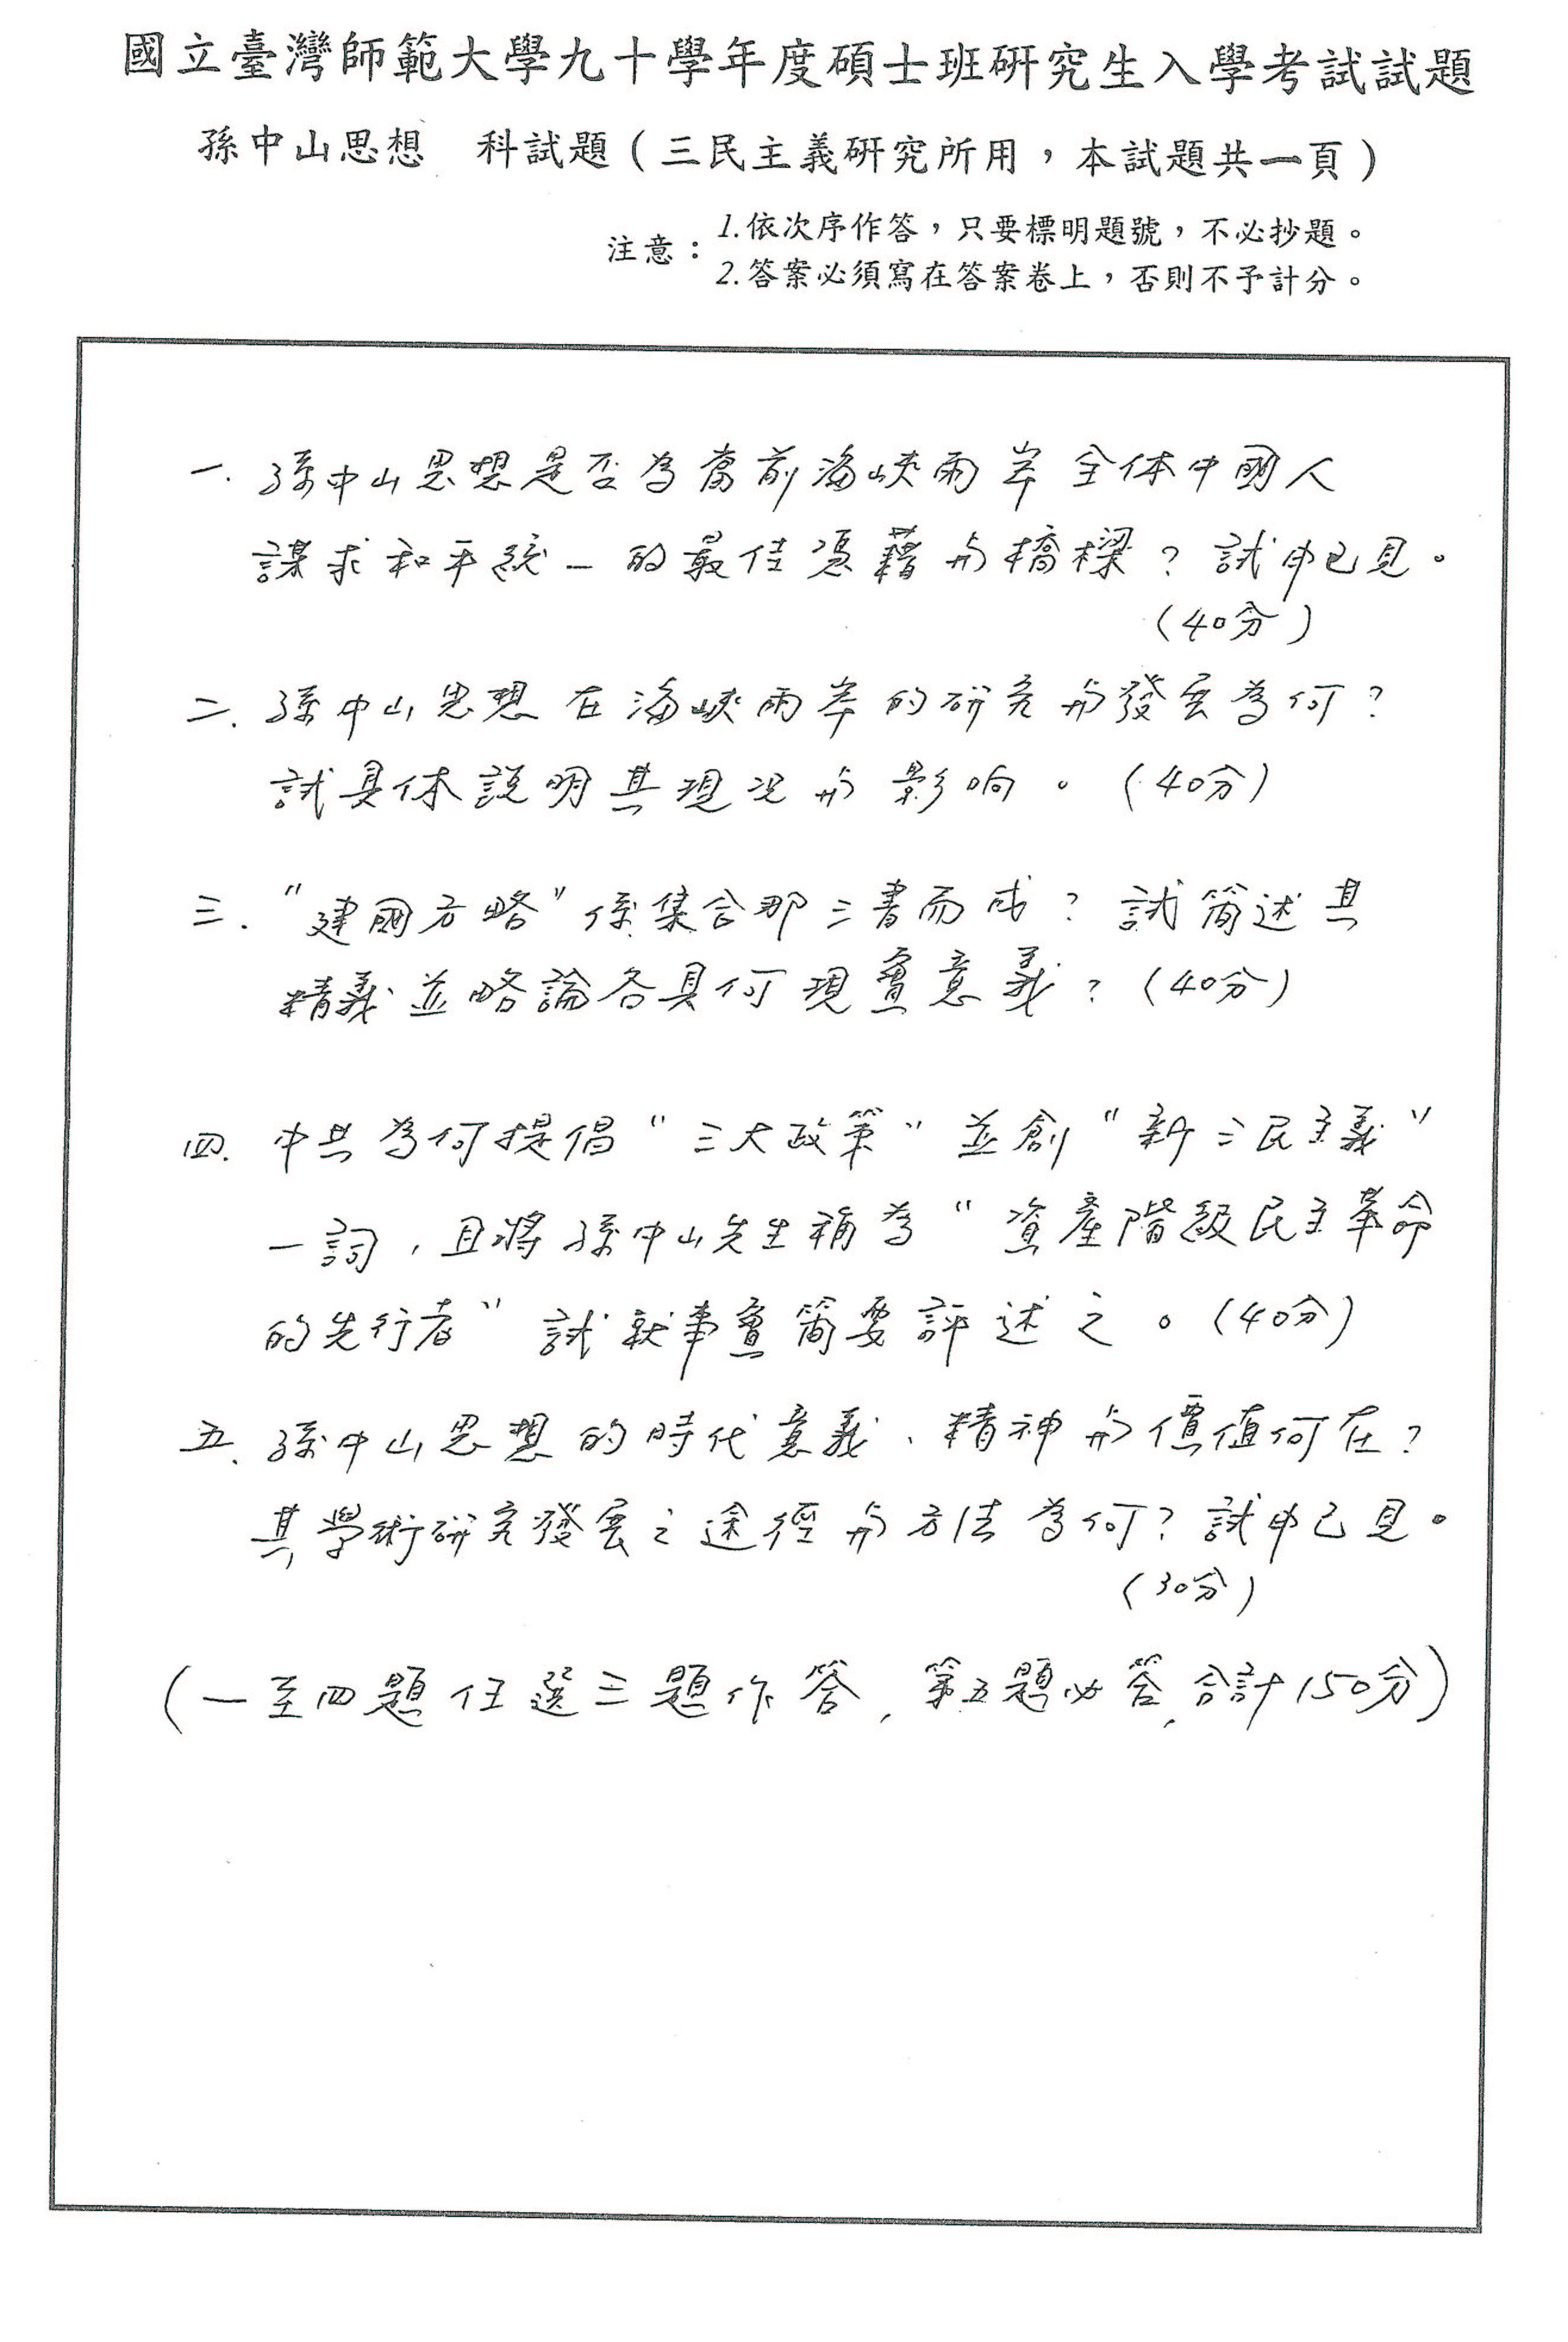 國立臺灣師範大學九十學年度碩士班研究生入學考試試題
孫中山思想 科試題（三民主義研究所用，本試題共一頁）
注意：1.依次序作答，只要標明題號，不必抄題。
2.答案必須寫在答案卷上，否則不予計分。
一. 孫中山思想是否為當前海峽兩岸全体中國人
謀求和平統一的最佳憑藉與橋樑？試申已見。
（40分）
二. 孫中山思想在海峽兩岸的研究與發展為何？
試具体說明其現況與影响。（40分）
三. “建國方略”係集合那三書而成？試簡述其
精義並略論各具何現實意義？（40分）
四. 中共為何提倡“三大政策”並創“新三民主義”
一詞，且將孫中山先生稱為“資產階級民主革命
的先行者”試就事實簡要評述之。（40分）
五. 孫中山思想的時代意義、精神與價值何在？
其學術研究發展之途徑與方法為何？試申己見。
（30分）
（一至四題任選三題作答，第五題必答，合計150分）